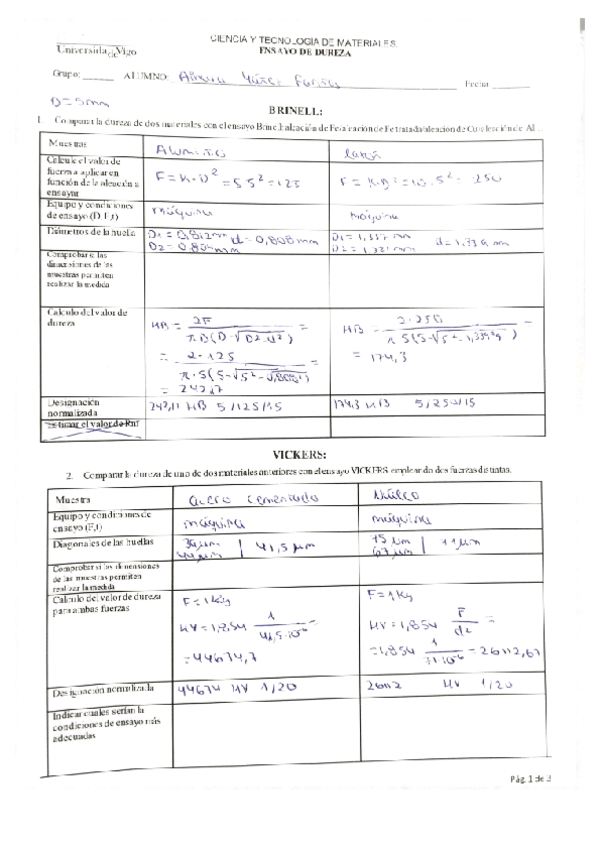 CIENCIA Y TECNOLOGÍA DE MATERIALES.
Universida de Vigo
ENSAYO DE DUREZA
Grupo: ______ ALUMNO: Fecha
D=5mm
BRINELL:
1. Comparar la dureza de dos materiales con el ensayo Brinell: aleación de Fe/aleación de Fe tratada/aleación de Cu/aleación de Al...
Muestras Aluminio Latón
Calcule el valor de
fuerza a aplicar en
función de la aleación a
ensayar
F = K·D² = 5·5² = 125 F = K·D² = 10·5² = 250
Equipo y condiciones
de ensayo (D, F,t)
máquina máquina
Diámetros de la huella
D1 = 0,812mm d = 0,808mm
D2 = 0,804mm
D1 = 1,357 mm d = 1,339 mm
D2 = 1,321 mm
Comprobar si las
dimensiones de las
muestras permiten
realizar la medida
Calculo del valor de
dureza
HB = 2F / π·D(D-√D²-d²) =
= 2·125 / π·5(5-√5²-0,808²)
= 242,7
HB = 2·250 / π5(5-√5²-1,339²) =
= 174,3
Designación
normalizada
242,11 HB 5/125/15 174,3 HB 5/250/15
Estimar el valor de Rm
VICKERS:
2. Comparar la dureza de uno de dos materiales anteriores con el ensayo VICKERS empleando dos fuerzas distintas.
Muestra acero cementado Núcleo
Equipo y condiciones de
ensayo (F,t)
máquina máquina
Diagonales de las huellas
41,5 μm
Comprobar si las dimensiones
de las muestras permiten
realizar la medida
Calculo del valor de dureza
para ambas fuerzas
F = 1Kg
HV = 1,854 1 / 41,5·10⁻⁶ =
= 44674,7
F = 1Kg
HV = 1,854 F / d² =
= 1,854 1 / 71·10⁻⁶ = 26112,67
Designación normalizada 44674 HV 1/20 26112 HV 1/20
Indicar cuales serían la
condiciones de ensayo más
adecuadas
Pág. 1 de 3